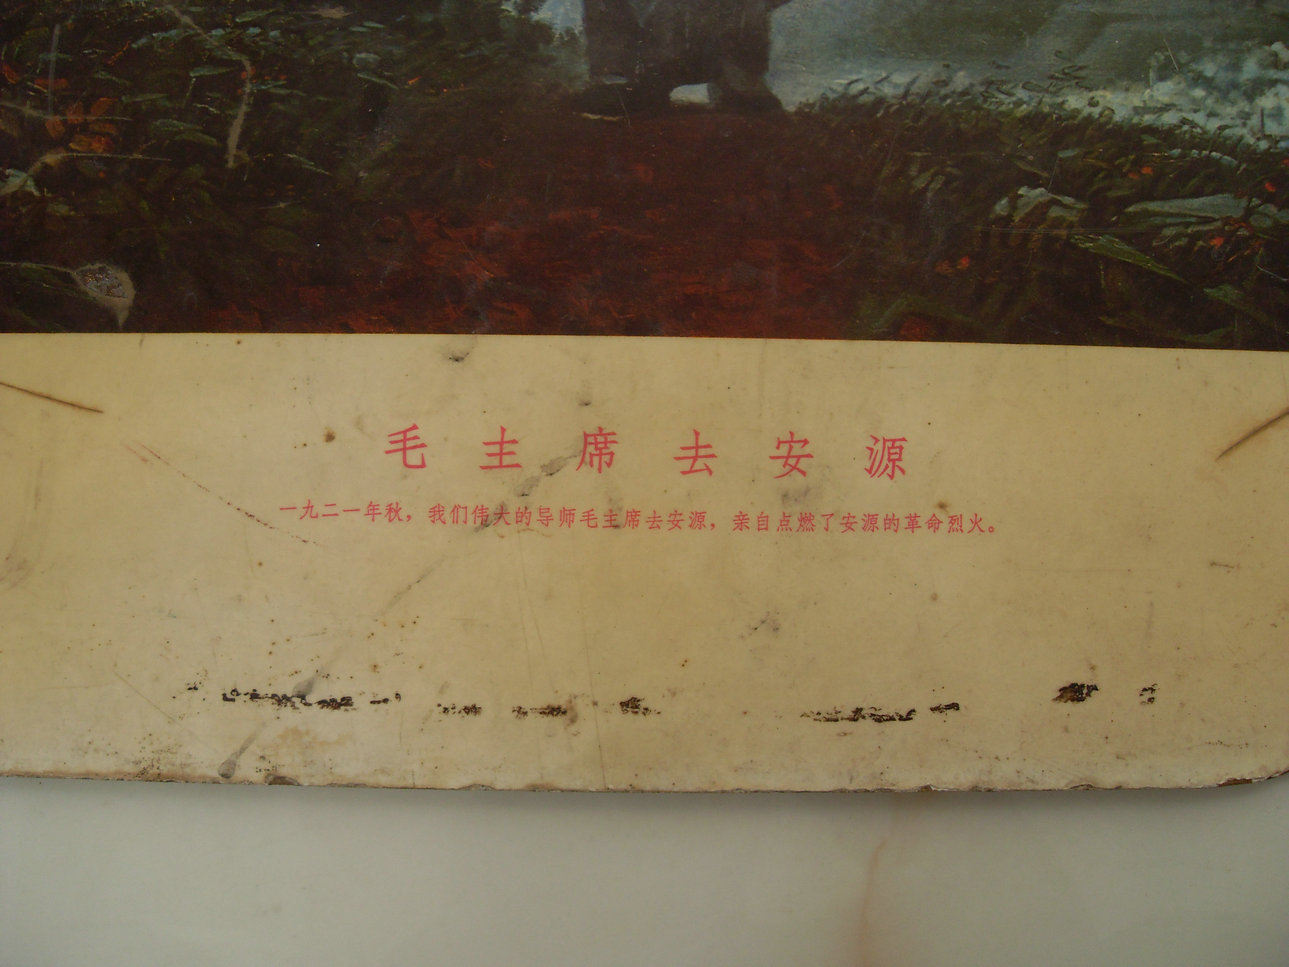 毛主席去安源
一九二一年秋，我们伟大的导师毛主席去安源，亲自点燃了安源的革命烈火。